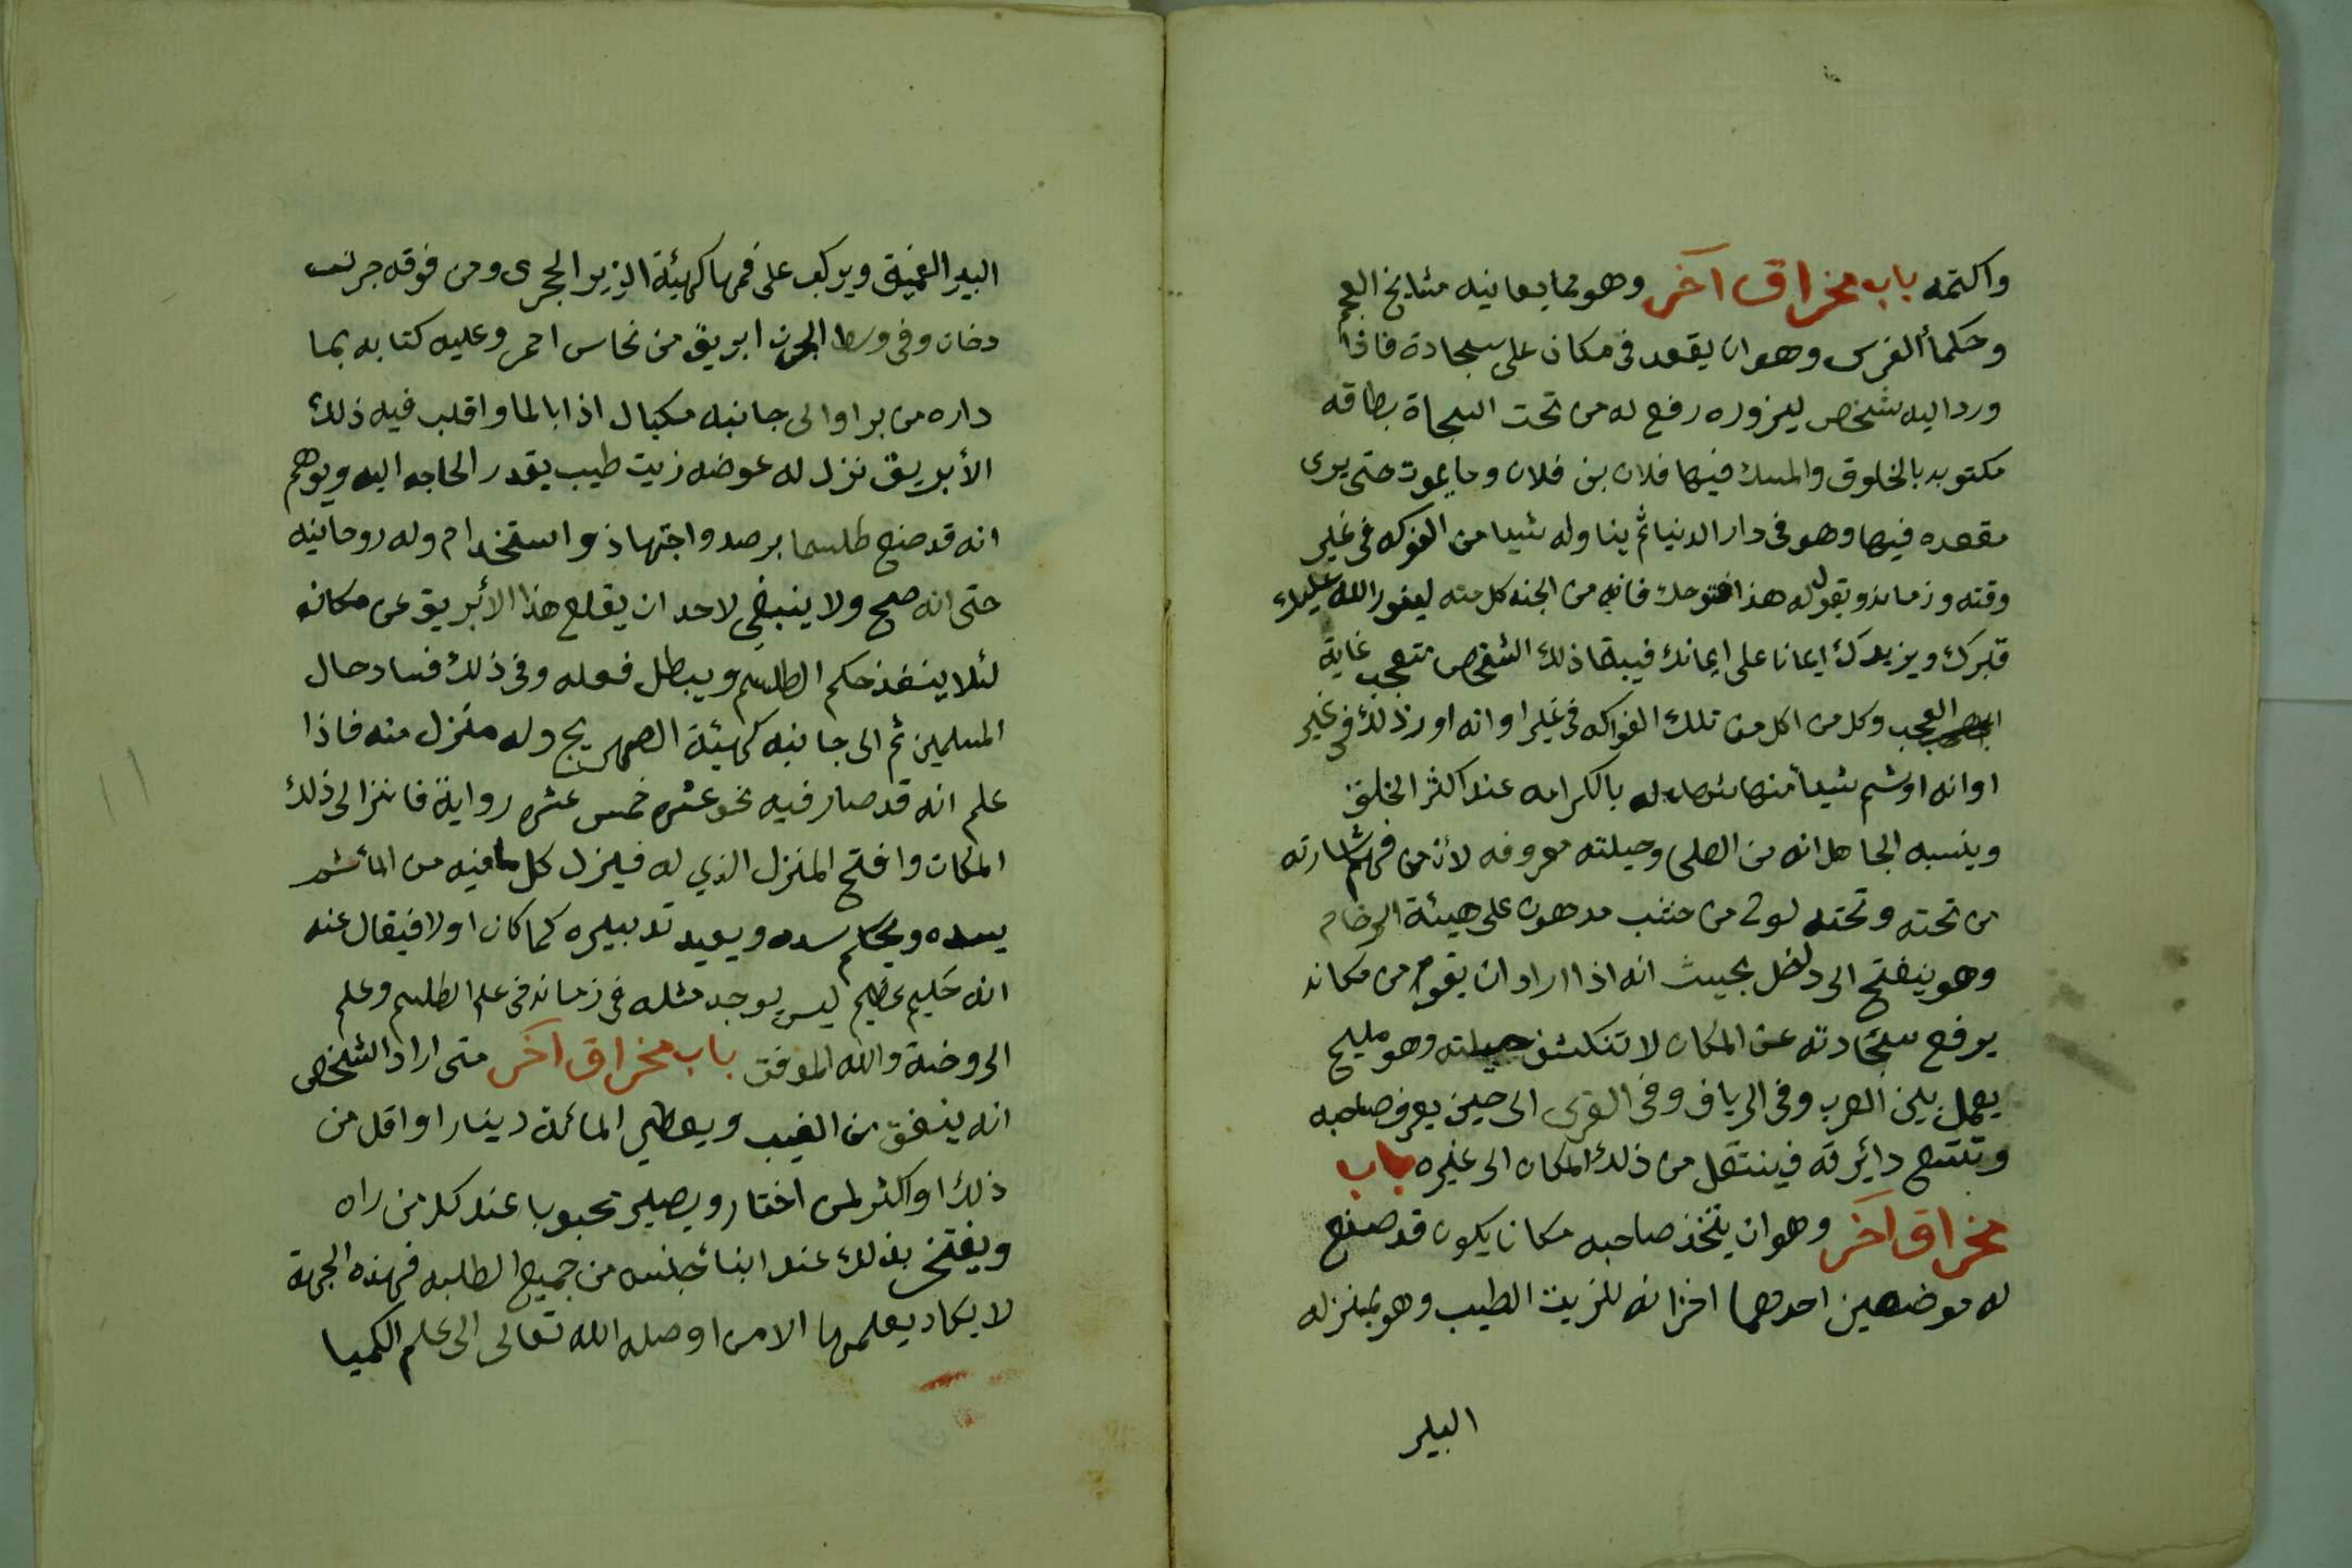 واكتمه باب مخراق آخر وهو مما يعانيه مشايخ العجم
وحكمأ الفرس وهو ان يقعد فى مكان على سجادة فاذا
ورد اليه شخص ليزوره رفع له من تحت السجاة بطاقه
مكتوبه بالخلوق والمسك فيها فلان بن فلان وما يموت حتى يرى
مقعده فيها وهو فى دار الدنيا ثم يناوله شيا من الفوكه فى غير
وقته وزمانه ويقول له هذا فتوحك فانه من الجنه كل منه لينور الله عليك
قبرك ويزيدك ايمانا على ايمانك فيبقا ذلك الشخص متعجب غاية
العجب وكل من اكل من تلك الفواكه فى غير اوانه او رذلك فى غير
اوانه او شم شيأ منها شهد له بالكرامه عند اكثر الخلق
وينسبه الجاهل انه من الصلحى وحيلته معروفه لأنه من فهم اشارته
من تحته وتحته لوح من خشب مدهون على هيئة الرخام
وهو ينفتح الى داخل بحيث انه اذا اراد ان يقوم من مكانه
يرفع سجادته عن المكان لا تنكشف حيلته وهو مليح
يعمل بين العرب وفى الرياف وفى القرى الى حين يعرف صاحبه
وتتسع دائرته فينتقل من ذلك المكان الى غيره باب
مخراق آخر وهو ان يتخذ صاحبه مكانا يكون قد صنع
له موضعين احدهما اخزانه للزيت الطيب وهو بمنزله
البير
البير العميق ويركب على فمها كهيئة الزير الحجرى ومن فوقه جرن
دخان وفى وسط الجرن ابريق من نحاس احمر وعليه كتابه بما
داره من برا والى جانبه مكيال اذا بالما واقلب فيه ذلك
الأبريق نزل له عوضه زيت طيب يقدر الحاجه اليه ويوهم
انه قد صنع طلسما برصد واجتهاذ واستخدام وله روحانيه
حتى انه صح ولا ينبغي لاحد ان يقلع هذا الأبريق عن مكانه
لئلا ينفذ حكم الطلسم ويبطل فعله وفى ذلك فساد حال
المسلمين ثم الى جانبه كهيئة الصهريج وله منزل منه فاذا
علم انه قد صار فيه نحو عشره خمس عشره رواية فانزا لى ذلك
المكان وافتح المنزل الذي له فينزل كل ما فيه من المأ ثم
يسده ويحكم سده ويعيد تدبيره كما كان اولا فيقال عنه
انه حكيم عظيم ليس يوجد مثله فى زمانه فى علم الطلسم وعلم
الروضة والله الموفق باب مخراق آخر متى اراد الشخص
انه ينفق من الغيب ويعطي المائة دينارا واقل من
ذلك او اكثر لمن اختار ويصير محبوبا عند كل من راه
ويفتخر بذلك عند ابنا جنسه من جميع الطلبه فهذه الجهة
لا يكاد يعلمها الا من اوصله الله تعالى الى علم الكميا